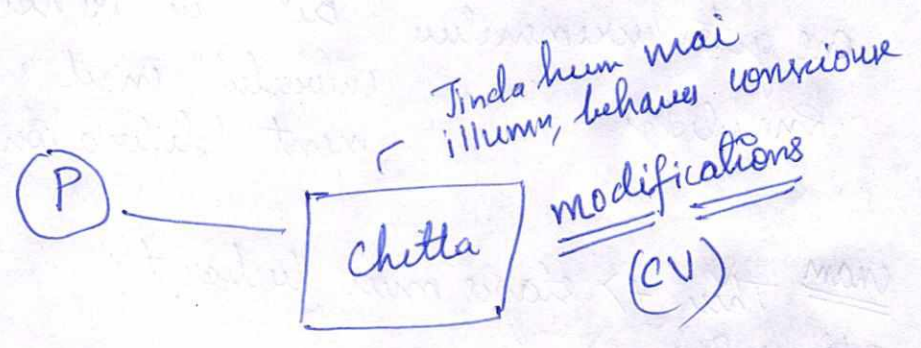 Jinda hum mai
illumn, behaves conscious
P
Chitta
modifications
(CV)